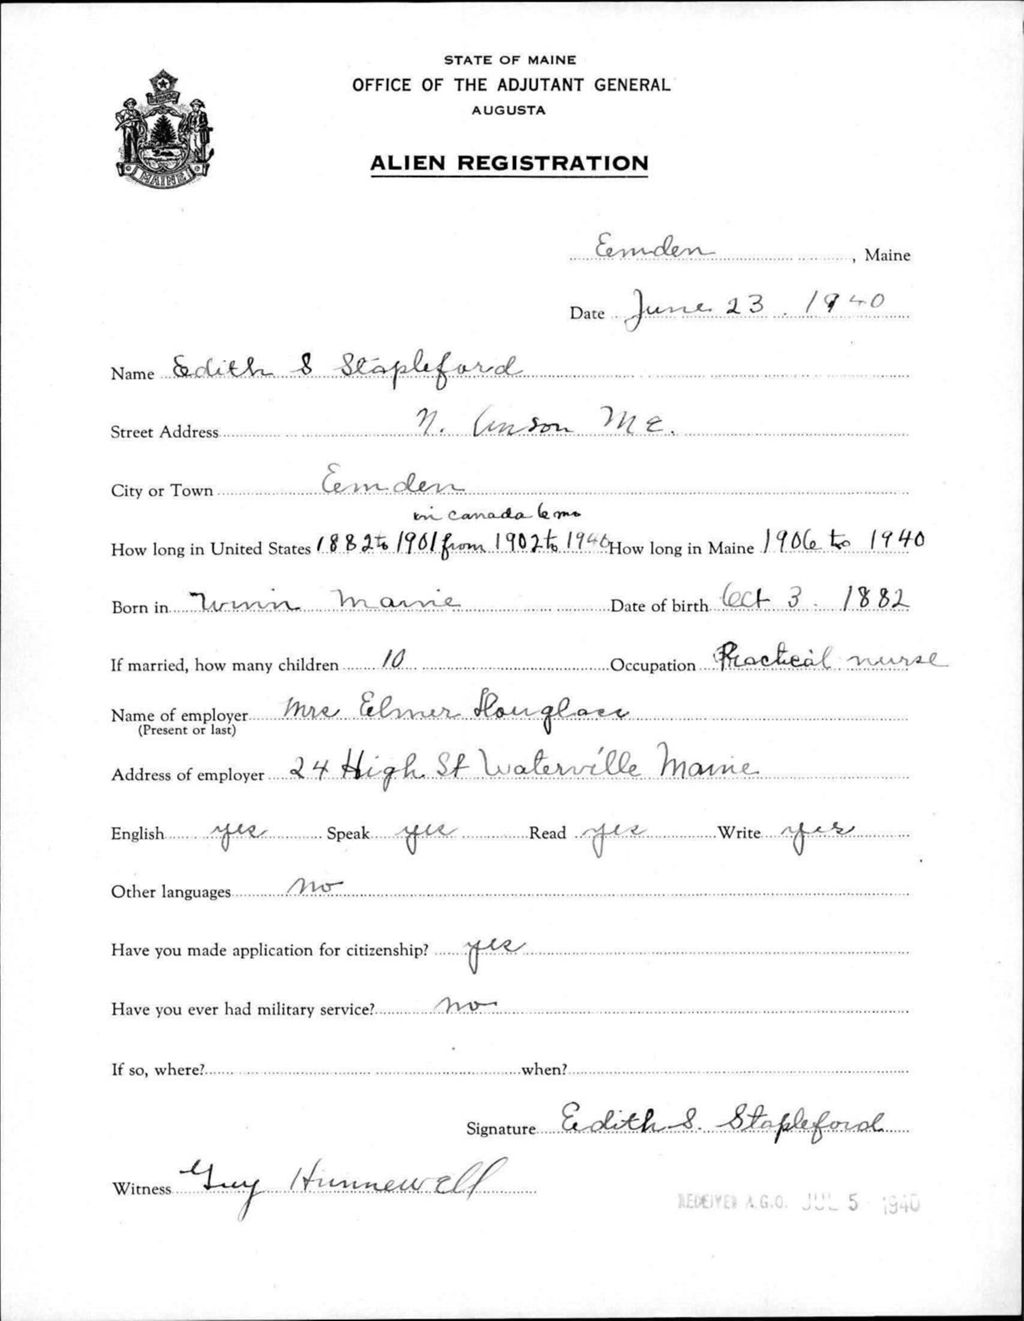 STATE OF MAINE
OFFICE OF THE ADJUTANT GENERAL
AUGUSTA
ALIEN REGISTRATION
MAINE
Eemden, Maine
Date June 23. 1940
Name Edith S Stapleford
Street Address N. Anson ME.
City or Town Eemden
in canada 6 mo
How long in United States 1882 to 1901 from 1902 to 1940 How long in Maine 1906 to 1940
Born in Winn Maine Date of birth Oct 3. 1882
If married, how many children 10 Occupation Practical nurse
Name of employer Mrs Elmer
(Present or last)
Address of employer 24 High St Waterville Maine
English yes Speak yes Read yes Write yes
Other languages no
Have you made application for citizenship? yes
Have you ever had military service? no
If so, where? when?
Signature Edith S. Stapleford
Witness Guy Hunnewell
RECEIVED A.G.O. JUL 5 1940